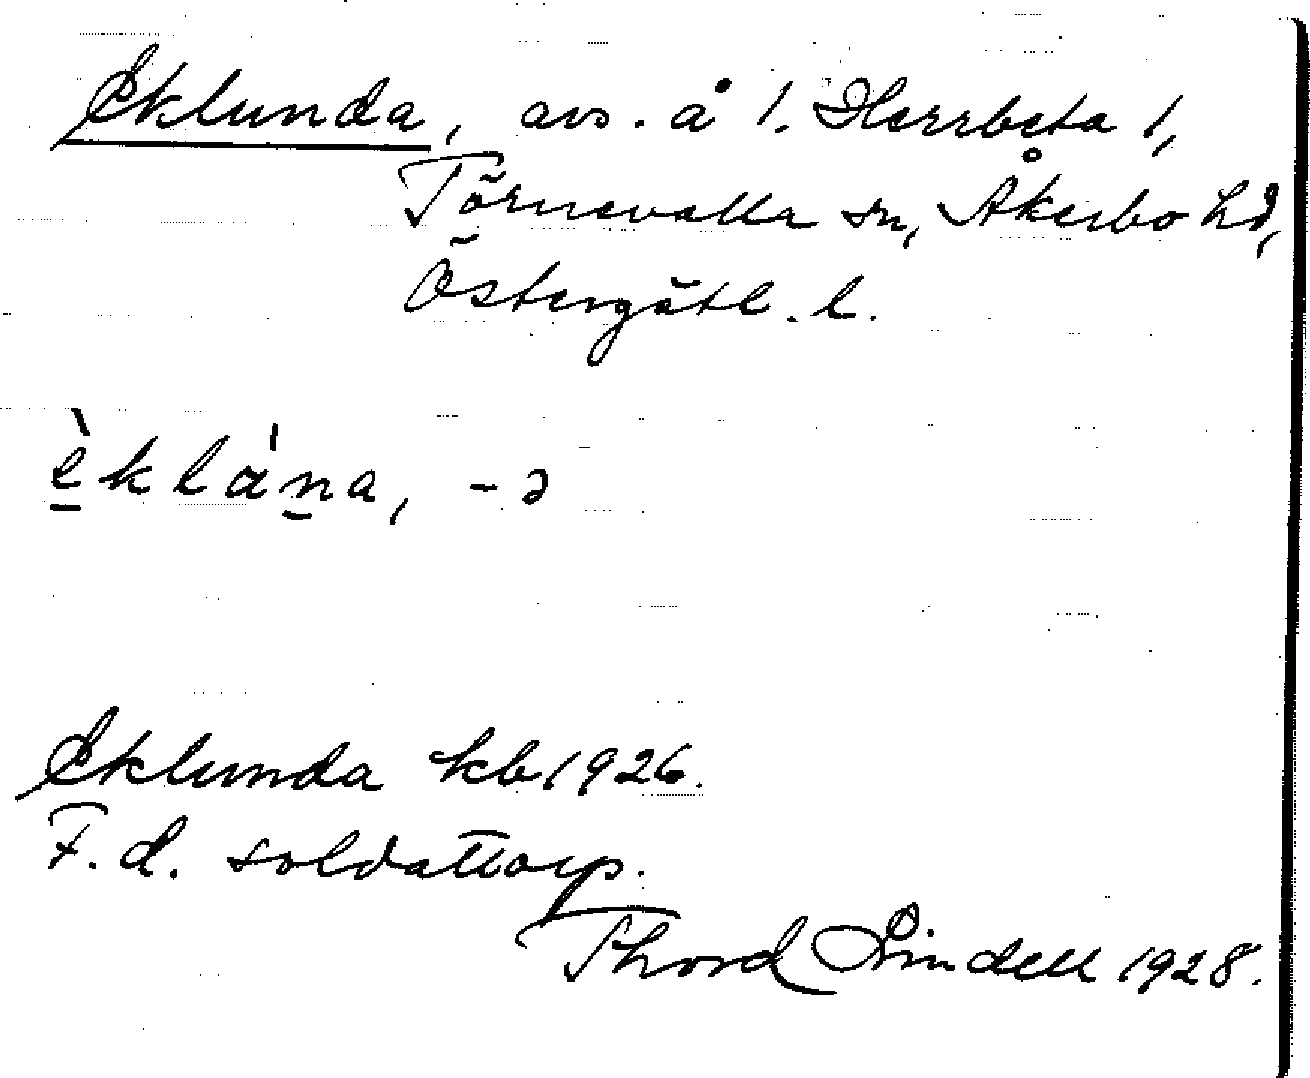 Eklunda, avs. å 1. Herrbeta 1,
Törnevalla sn, Åkerbo hd,
Östergötl. l.
èklána, -ə
Eklunda kb 1926.
F. d. soldattorp.
Thord Lindell 1928.